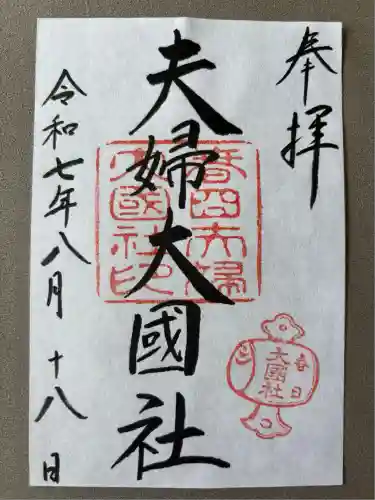 奉拝
夫婦大國社
令和七年八月十八日
春日夫婦
大國社印
春日
大国社